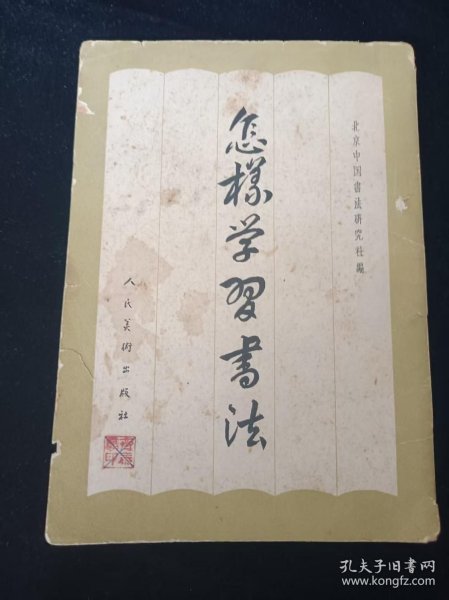 北京中国書法研究社編
怎樣学習書法
人民美術出版社
孔夫子旧书网
www.kongfz.com